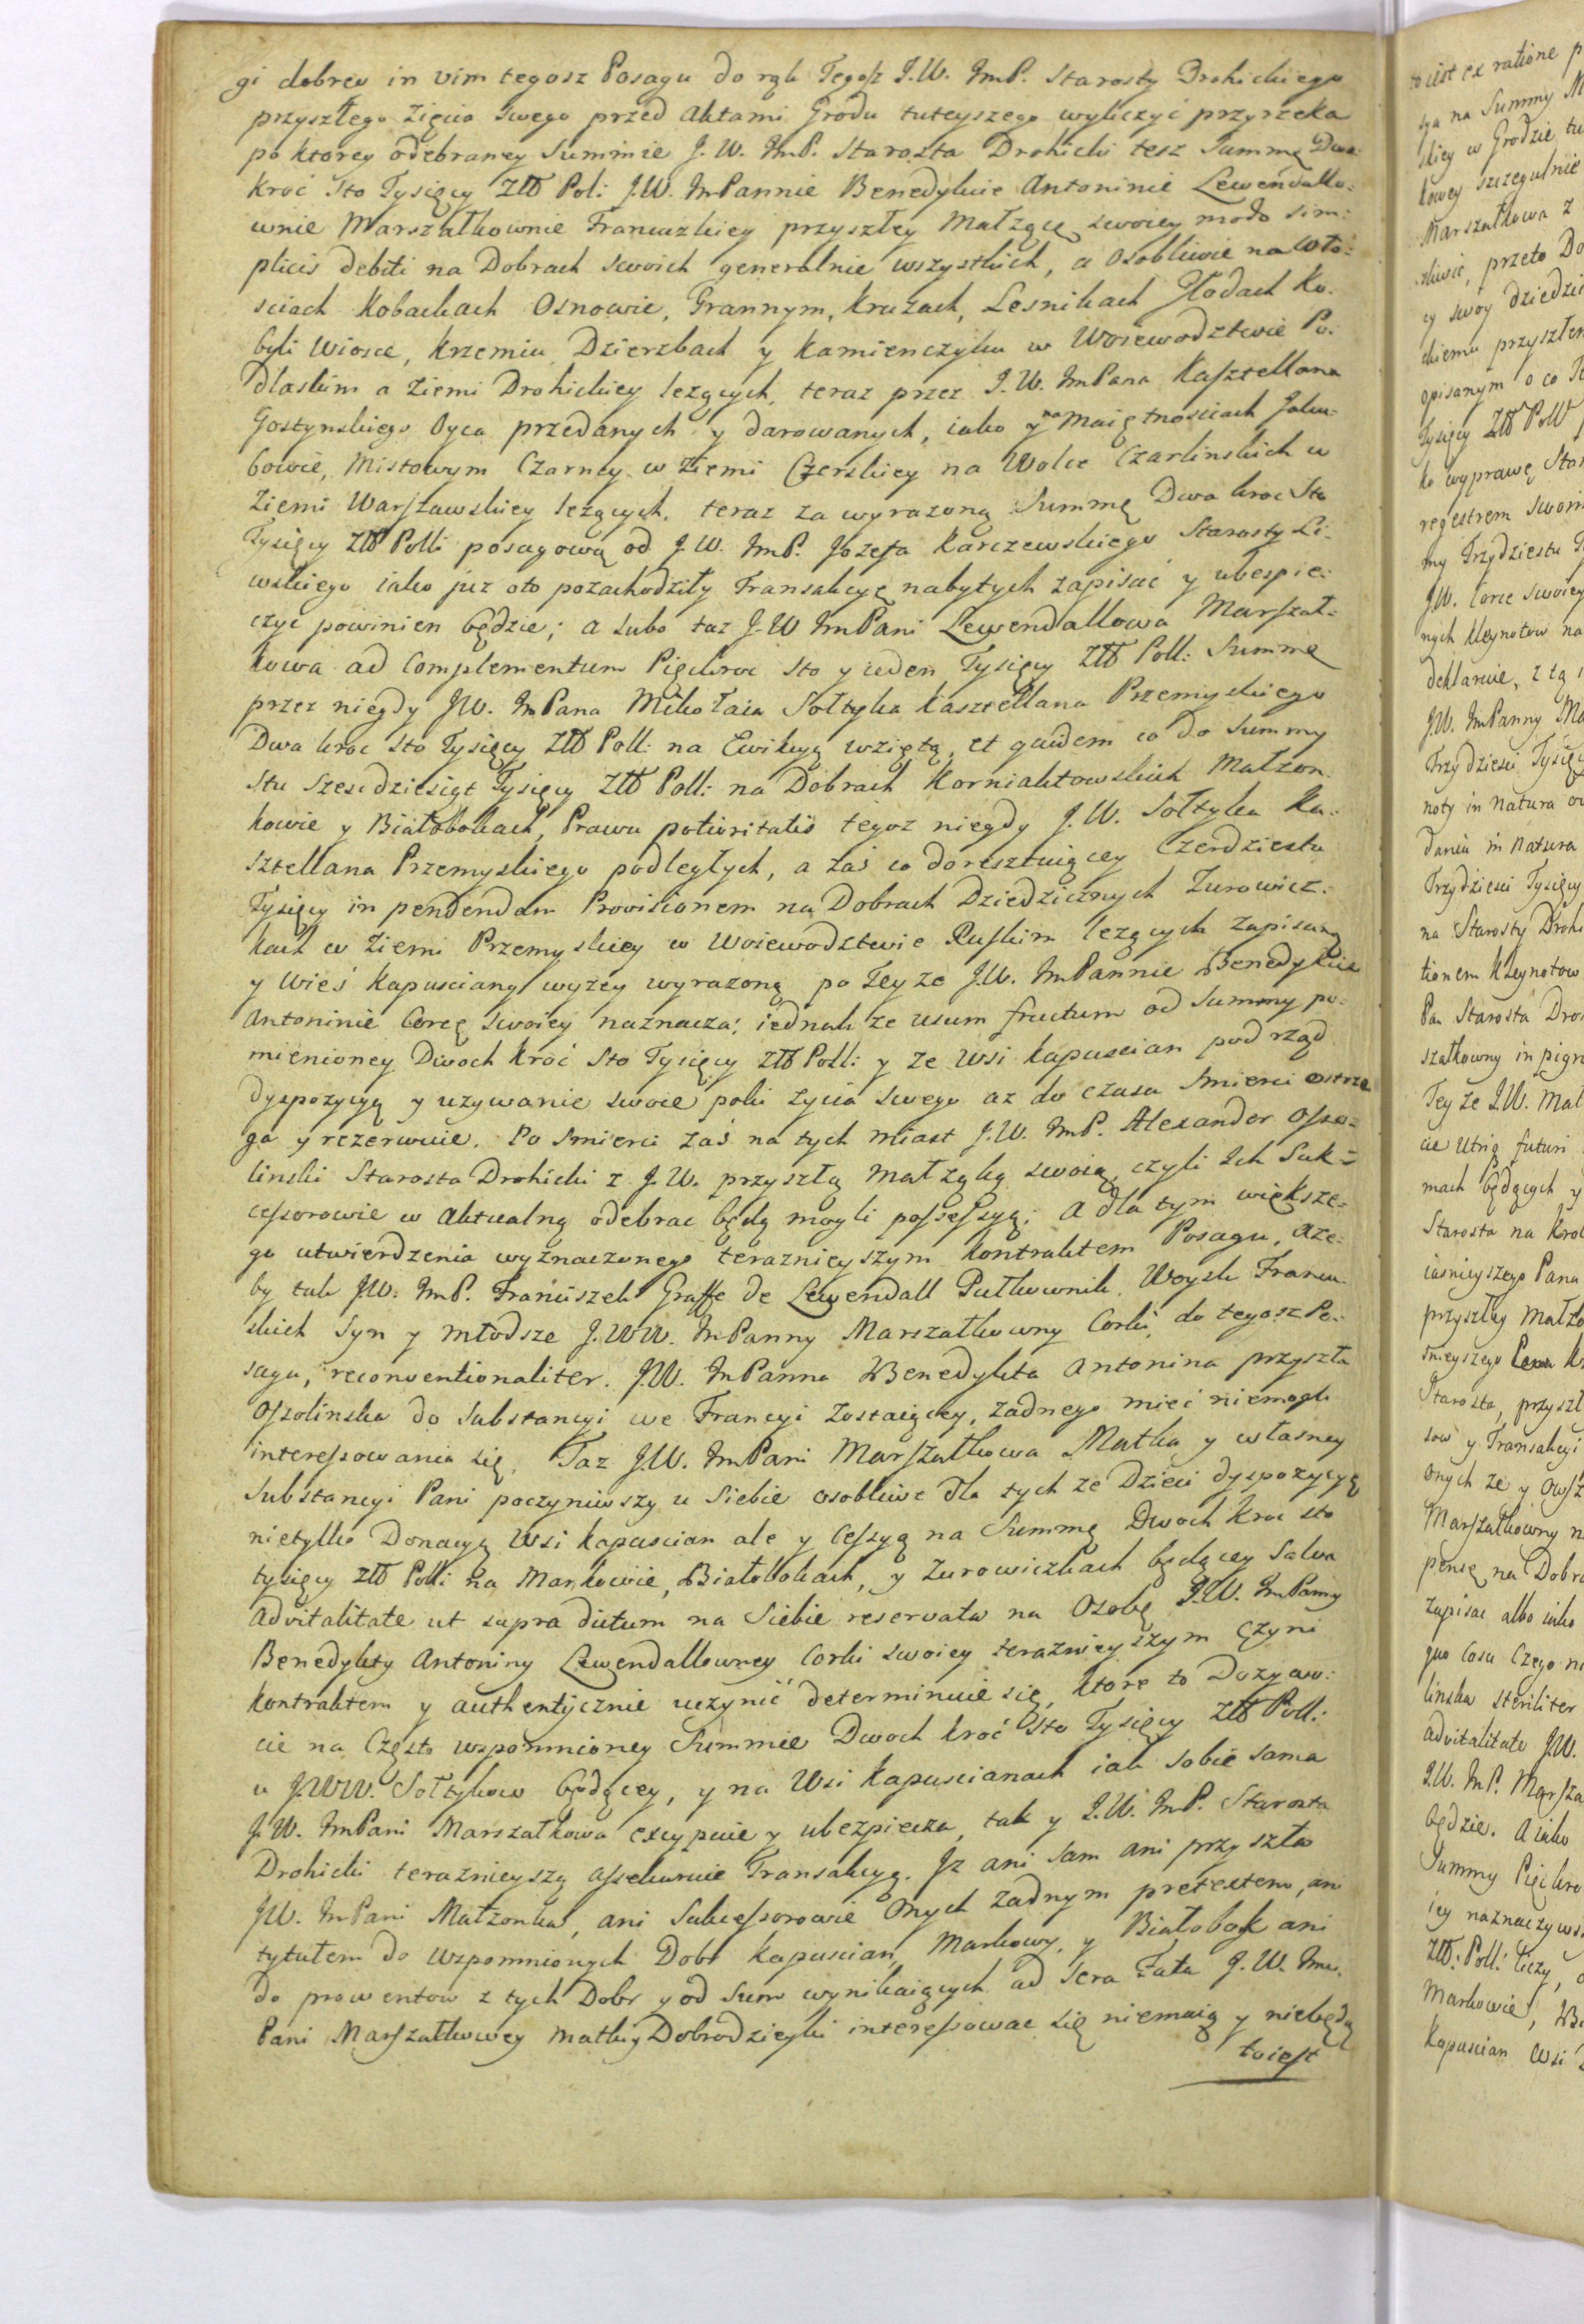 gi dobrey in vim tegosz Posagu do rąk Tegosz J.W. ImP. Starosty Drohickiego
przyszłego Zięcia swego przed Aktami Grodu tuteyszego wyliczyć przyrzeka
po ktorey odebraney Summie J. W. ImP. Starosta Drohicki tesz Summę Dwa
kroć Sto Tysięcy Złł Pol: J.W. ImPannie Benedykcie Antoninie Lewendallo=
wnie Marszałkownie Francuzkiey przyszłey Małżące swoiey modo sim=
plicis debiti na Dobrach swoich generalnie wszystkich, a osobliwie na Wło=
sciach Kobackach Osnowie, Grannym, Kruzach, Lesnikach Głodach Ko=
byli Wiosce, Krzemiu Dzierzbach y Kamienczyku w Woiewodztwie Po=
dlaskim a Ziemi Drohickiey leżących, teraz przez J.W. ImPana Kasztellana
Gostynskiego Oyca przedanych y darowanych, iako y na Maiętnosciach Jaku=
bowie, Mistowym Czarney w Ziemi Czerskiey na Wolce Czarlinskich w
Ziemi Warszawskiey leżących, teraz za wyrazoną Summę Dwa kroc Sto
Tysięcy Złł Poll: posagową od J.W. ImP. Jozefa Karczewskiego Starosty Li=
wskiego iako juz oto pozachodziły Transakcye nabytych zapisać y ubespie=
czyć powinien będzie; a lubo taz J.W ImPani Lewendallowa Marszał=
kowa ad Complementum Pięckroc Sto y ieden Tysięcy Złł Poll: Summę
przez niegdy JW. ImPana Mikołaia Sołtyka Kasztellana Przemyskiego
Dwa kroc Sto Tysięcy Złł Poll: na Ewikcyą wziętą, et quidem co do Summy
Stu Szescdziesiąt Tysięcy Złł Poll: na Dobrach Korniaktowskich Małzon=
kowie y Białobokach, Prawu potioritatis tegoz niegdy J.W. Sołtyka Ka=
sztellana Przemyskiego podległych, a zaś co do resztuiącey Czerdziestu
Tysięcy in pendendam Provisionem na Dobrach Dziedzicznych Zurowicz=
kach w Ziemi Przemyskiey w Woiewodztwie Ruskim leżących zapisaną
y Wieś Kapuscianę wyzey wyrazoną po Teyze J.W. ImPannie Benedykcie
Antoninie Corce swoiey naznacza; iednak ze usum fructum od Summy po=
mienioney Dwoch kroć Sto Tysięcy Złł Poll: y ze Wsi Kapuscian pod rząd
dyspozycyą y uzywanie swoie poki zycia swego az do czasu Smierci ostrze
ga y rezerwuie. Po Smierci zaś na tych miast J.W. ImP. Alexander Osso=
linski Starosta Drohicki z J.W. przyszłą Małżąką swoią, czyli ich Suk=
cessorowie w aktualną odebrac będą mogli possessyą; A dla tym większe=
go utwierdzenia wyznaczonego teraznieyszym kontraktem Posagu, aze=
by tak JW. ImP. Franciszek Graffe de Lewendall Pułkownik Woysk Francu=
skich Syn y młodsze J.WW. ImPanny Marszałkowny Corki, do tegosz Po=
sagu, reconventionaliter. J.W. ImPanna Benedykta Antonina przyszła
Ossolinska do Substancyi we Francyi zostaiącey, zadnego mieć niemogli
interessowania się, Taz J.W. ImPani Marszałkowa Matka y własney
Substancyi Pani poczyniwszy u Siebie osobliwe dla tych ze Dzieci dyspozycyą
nietylko Donacyą Wsi Kapuscian ale y Cessyą na Summę Dwoch kroc sto
tysięcy Złł Poll: na Markowie, Białobokach, y Zurowiczkach będącey Salva
advitalitate ut supra dictum na Siebie reservata na Osobę J.W. ImPanny
Benedykty Antoniny Lewendallowney Corki swoiey teraznieyszym czyni
kontraktem y authentycznie uczynić determinuie się, ktore to Dozywo=
cie na Często wzpomnioney Summie Dwoch kroć Sto Tysięcy Złł Poll:
u J.WW. Sołtykow będącey, y na Wsi Kapuscianach iak sobie sama
J.W. ImPani Marszałkowa excypuie y ubezpiecza, tak y J.W. ImP. Starosta
Drohicki teraznieyszą assekuruie Transakcyą. Iz ani sam ani przyszła
JW. ImPani Małzonka, ani Sukcessorowie Onych zadnym pretextem, ani
tytułem do Wzpomnionych Dobr Kapuscian, Markowy, y Białobok ani
do prowentow z tych Dobr y od Sum wynikaiących ad sera fata J.W. Im
Pani Marszałkowey Matki Dobrodzieyki interessowac się niemaią y niebędą
to iest
to iest ex ratione p
tya na Summy M
skiey w Grodzie tu
kowey szczegulnie
Marszałkowa z
sliwie, przeto Do
cy swoy dziedzi
ckiemu przyszłem
opisanym o co Te
Tysięcy Złł Poll
ko wyprawę Star
regestrem swoim
my Trzydziestu T
J.W. Corce swoiey
nych kleynotow na
deklaruie, z tą
J.W. ImPanny Ma
Trzydziesci Tysięcy
noty in natura
dania in natura
Trzydziesci Tysięcy
na Starosty Drohi
tionem kleynotow
Pan Starosta Dro
szałkowny in pign
Tey ze J.W. Mał
cie Utrią futuri
mach będących y
Starosta na Krol
iasnieyszego Pana
przyszłey Małżo
snieyszego
Starosta, przyszł
sow y Transakcyi
Onych ze y Owsz
Marszałkowny n
pensę na Dobra
zapisac albo iako
quo Casu Czego ni
linska steriliter
advitalitate J.W.
J.W. ImP. Marsza
będzie. A iako
Summy Pięckro
iey naznaczyws
Złł: Poll: liczy,
Markowie, Bi
Kapuscian Wsi